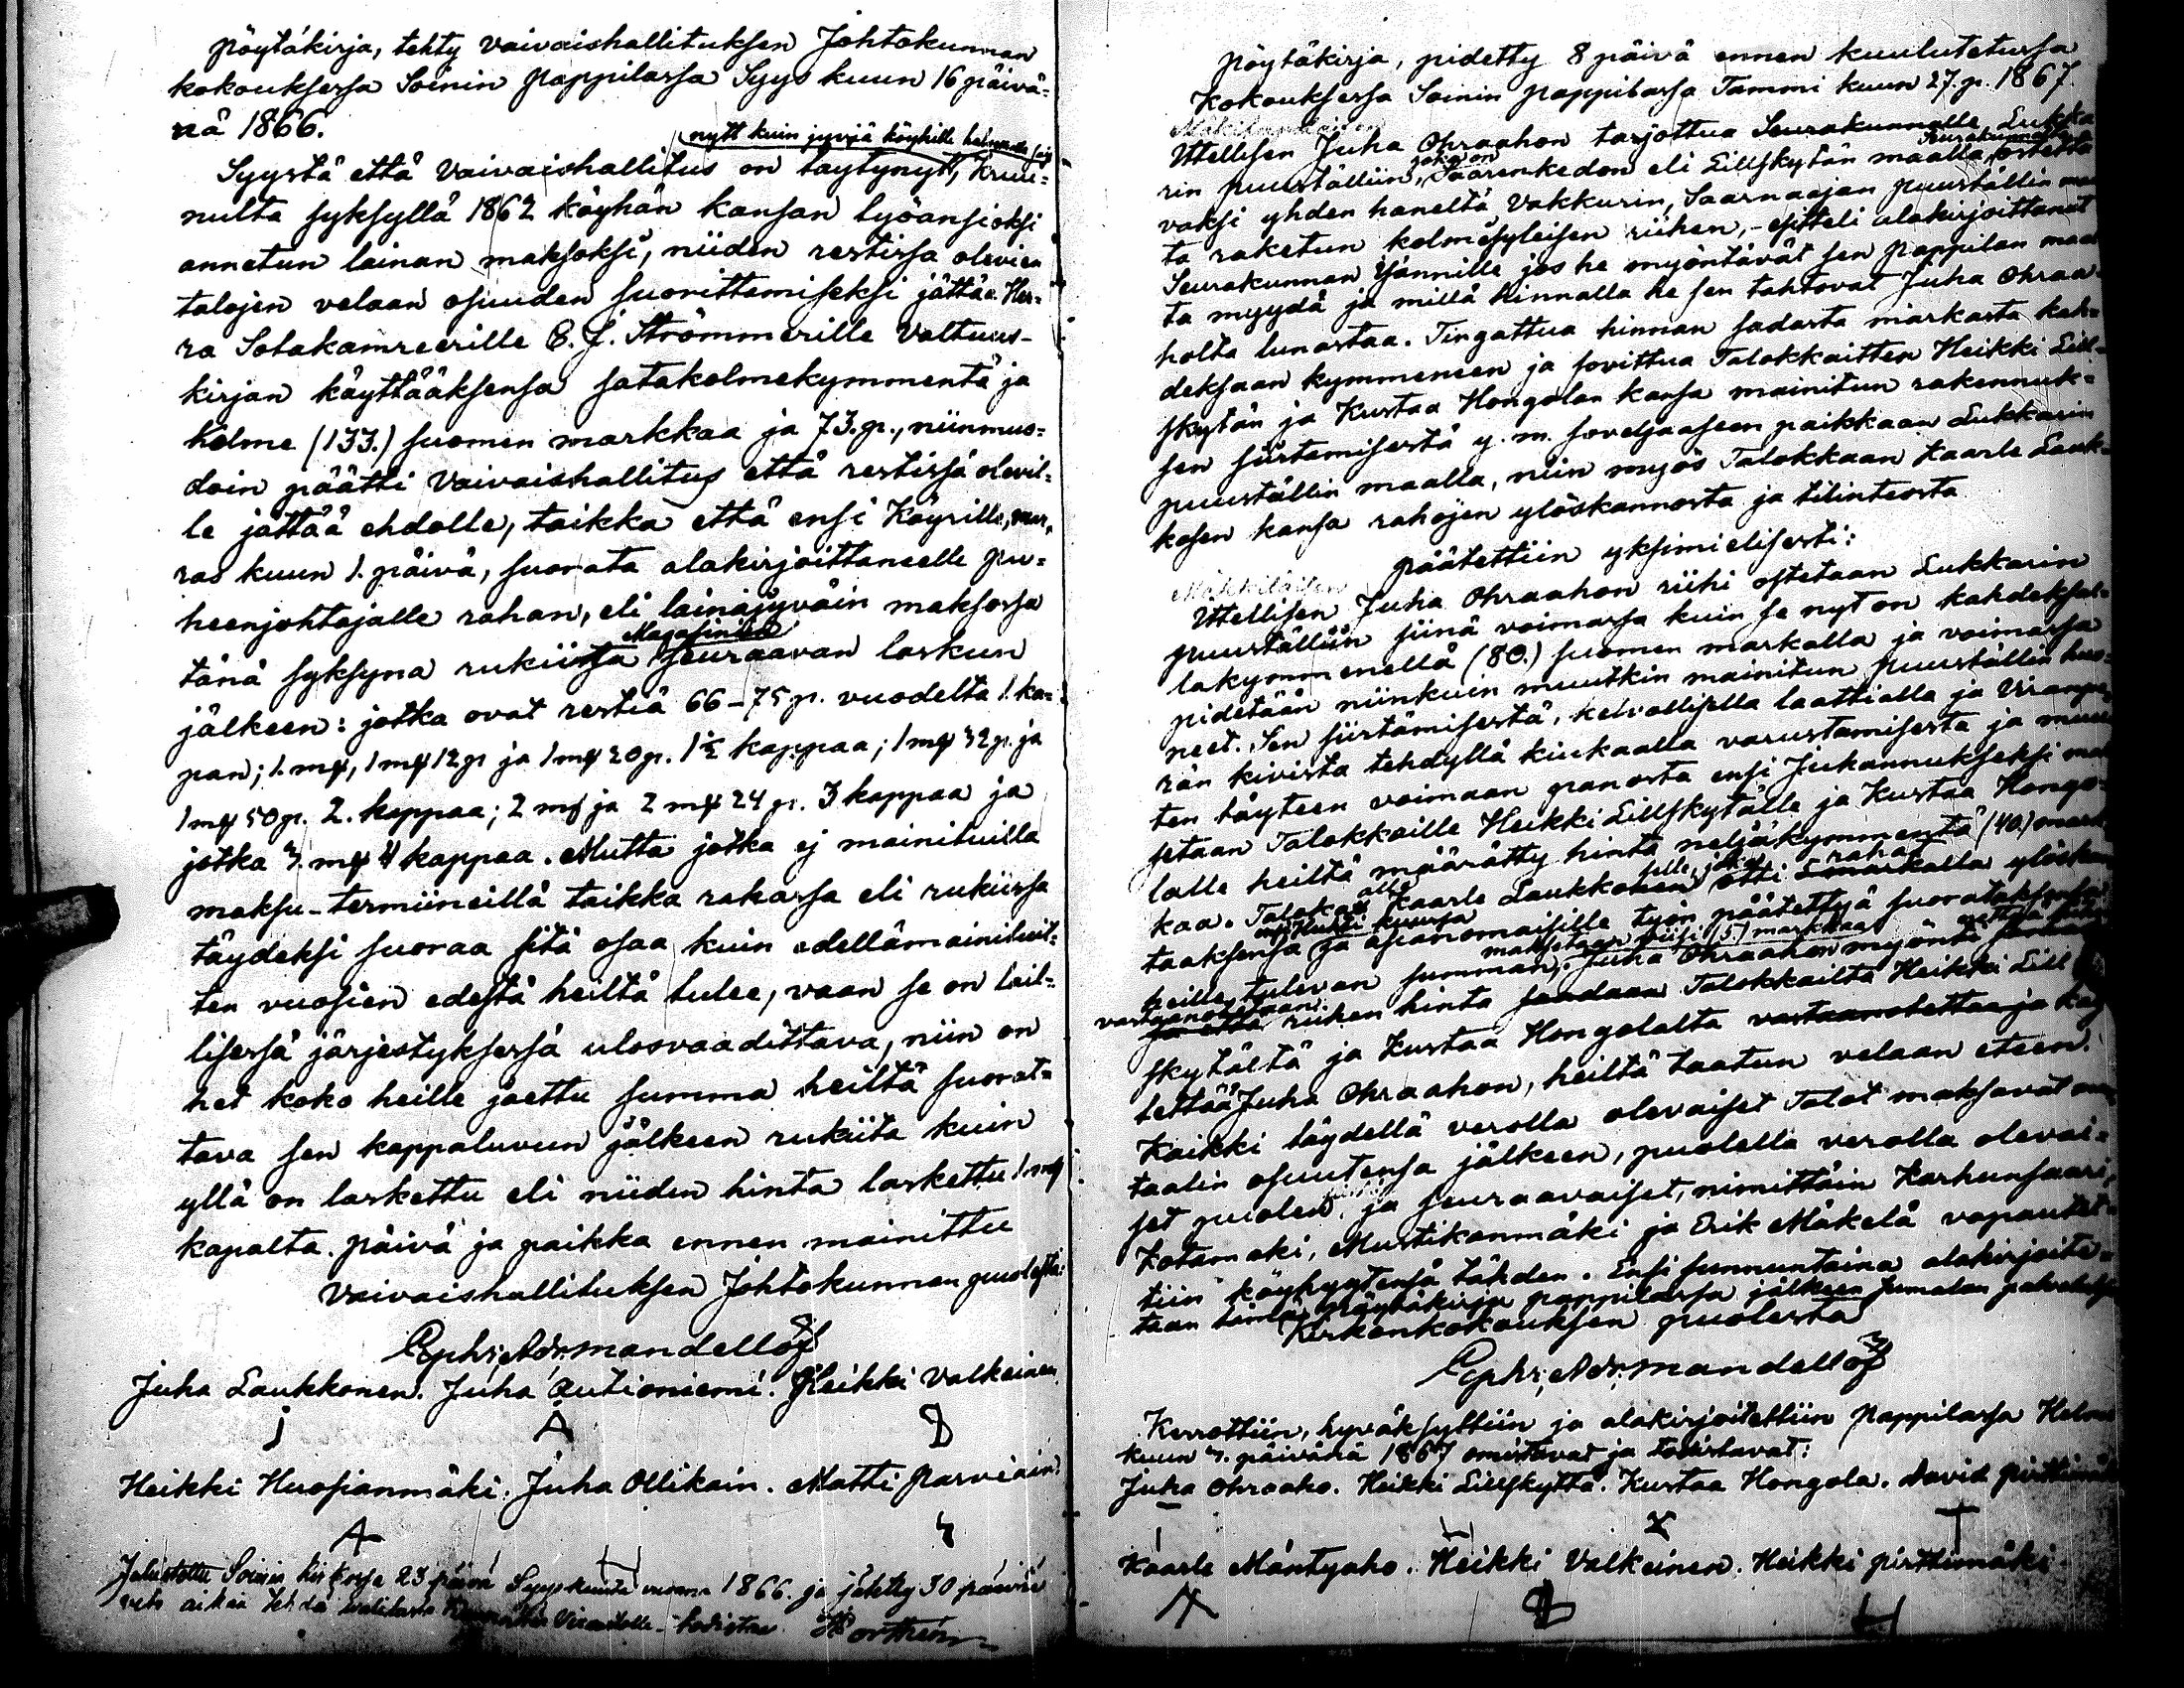 Pöytäkirja, tehty Vaivaishallituksen Johtokunnan
kokouksesa Soinin Pappilassa Syys kuun 16 päivä-
nä 1866.
nytt kuin jyvjä köyhille
Syystä että Vaivaishallitus on täytynytt, Kruu-
nulta syksyllä 1862 köyhän kansan työansioksi
annetun lainan maksoksi, niiden restissa olevien
talojen velaan osuuden suorittamiseksi jättää Her-
ra Sotakamreerille C. J. Strömmerille Valtuus-
kirjan käyttääksensä satakolmekymmentä ja
kolme (133.) suomen markkaa ja 73. p., niinmuo-
doin päätti Vaivaishallitus että restissä olevil-
le jättää ehdolle, taikka että ensi Köyrille, mar-
ras kuun 1. päivä, suorata alakirjoittaneelle pu-
heenjohtajalle rahan, eli lainajyväin maksossa
Magasinien
tänä syksynä rukiissa seuraavan laskun
jälkeen: jotka ovat restiä 66-75 p. vuodelta 1. kap-
pan; 1. mk, 1 mk 12 p ja 1 mk 20 p. 1½ kappaa; 1 mk 32 p. ja
1 mk 50 p. 2. kappaa; 2 mk ja 2 mk 24 p. 3 kappaa ja
jotka 3. mk 4 kappaa. Mutta jotka ej mainituilla
maksu-termiineillä taikka rahassa eli rukiissa
täydeksi suoraa sitä osaa kuin edellämainituit-
ten vuosien edestä heiltä tulee, vaan se on lail-
lisessä järjestyksessä ulosvaadittava, niin on
het koko heille jaettu summa heiltä suorat-
tava sen kappaluvun jälkeen rukiita kuin
yllä on laskettu eli niiden hinta laskettu 1 mk
kapalta. Päivä ja paikka ennen mainittu
Vaivaishallituksen Johtokunnan puolesta:
Ephr. Adr. Mandellöf
Juha Laukkonen. Juha Autioniemi. Heikki Valkeinen.
Heikki Huosianmäki. Juha Ollikain. Matti Parviain:
Julistettu Soinin kirkosa 23 päivä Syyskuuta vuonna 1866. ja jätetty 30 päiviä
aikaa tehdä valituksia todistaa
Pöytäkirja, pidetty 8 päivä ennen kuulutetussa
Kokouksessa Soinin Pappilassa Tammi kuun 27. p. 1867.
Uttellisen Juha Ohraahon tarjottua Seurakunnalle Lukka-
joka on Seurakunnalle
rin puuställiin, Saarenkedon eli Lillskytän maalla, ostetta-
vaksi yhden haneltä Vakkurin, Saarnaajan puuställin maal-
ta raketun kolmesyleisen riihen, - esitteli alakirjoittanut
Seurakunnan Jsännille jos he myöntävät sen Pappilan maal-
ta myydä ja millä hinnalla he sen tahtovat Juha Ohraa-
holta lunastaa. Tingattua hinnan sadasta markasta kah-
deksaan kymmeneen ja sovittua Talokkaitten Heikki Lill-
skytän ja Kustaa Hongolan kansa mainitun rakennuk-
sen siirtämisestä y. m. soveljaaseen paikkaan Lukkarin
puuställin maalla, niin myös Talokkaan Kaarle Lauk-
kosen kansa rahojen ylöskannosta ja tilinteosta
päätettiin yksimielisesti:
Uttellisen Juha Ohraahon riihi ostetaan Lukkarin
puuställiin siinä voimassa kuin se nyt on kahdeksal-
lakymmenellä (80.) suomen markalla ja voimassa
pidetään niinkuin muutkin mainitun puuställin huo-
neet. Sen siirtämisestä, kelvollisella laattialla ja
rän kivista tehdyllä kiukaalla varustamisesta ja muut-
ten täyteen voimaan panosta ensi Juhannukseksi
setaan Talokkaille Heikki Lillskytälle ja Kustaa Hongo-
lalle heiltä määrätty hinta neljäkymmentä (40.) mark-
kaa. Talokas Kaarle Laukkonen otti markalla ylös
taaksensa ja asianomaisille työn päätettyä suorataksensa
maksetaan viisi (5) markkaa
heille tulevan summan. Juha Ohraahon myönti
vastaanottamaan
riihen hinta saadaan Talokkailta Heikki Lill-
skytältä ja Kustaa Hongolalta vastaanotettaa ja
tettää Juha Ohraahon, heiltä taatun velaan eteen.
Kaikki täydellä verolla olevaiset Talot maksavat
taalin osuutensa jälkeen, puolella verolla olevai-
set puolen, ja seuraavaiset, nimittäin Karhunsaari,
Kotamäki, Mustikanmäki ja Erik Mäkelä vapautet-
tiin köyhyytensä tähden. Ensi sunnuntaina alakirjoite-
taan tämä pöytäkirja Pappilassa jälkeen Jumalan palveluksen
Kirkonkokouksen puolesta
Ephr. Adr. Mandellöf
Kerrottiin, hyväksyttiin ja alakirjoitettiin Pappilassa Helmi
kuun 3. päivänä 1867 omistavat ja todistavat:
Juha Ohraaho. Heikki Lillskyttä. Kustaa Hongola. David Pirttimäki
Kaarle Mäntyaho. Heikki Valkeinen. Heikki Pirttimäki